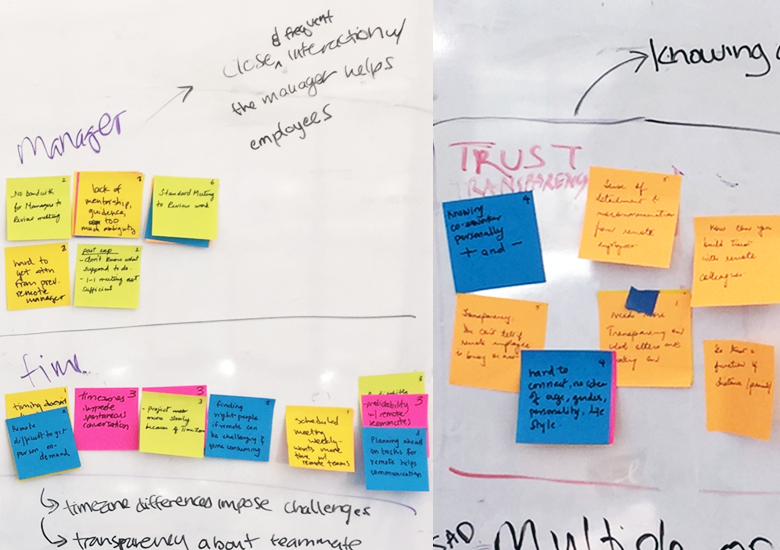 & frequent
close, interaction w/
the manager helps
employees
manager
No bandwith
for Managers to
Review meeting
lack of
mentorship,
guidence,
too
much ambiguity
Standard Meeting
to Review work
6
hard to
get attn
from prev.
remote
manager
- don't know what
suppond to do.
- 1-1 meeting not
sufficient
time
timing doesn't
Remote
difficult to get
person, on-
demand
Timezones
impede
spontaneous
conversation
3
- project
more slowly
because of timezone
3
3
finding
right people
if remote can
be challenging &
time consuming
Scheduled
meeting
weekly-
wants more
time w/
remote teams
w/ remote
teammates
3
Planning ahead
on tasks for
remote helps
communication
timezone differences impose challenges
transparency about teammate
Knowing
TRUST
TRANSPARENCY
4
Knowing
co-worker
personally
+ and -
Sense of
detachment &
miscommunication
from remote
employees
How can you
build trust
with remote
colleagues
Transparency.
can't tell if
remote employee
is busy or
Need more
Transparency on
what others are
4
hard to
connect, no idea
of age, gender,
personality, life
style.
function of
distance
Multiple